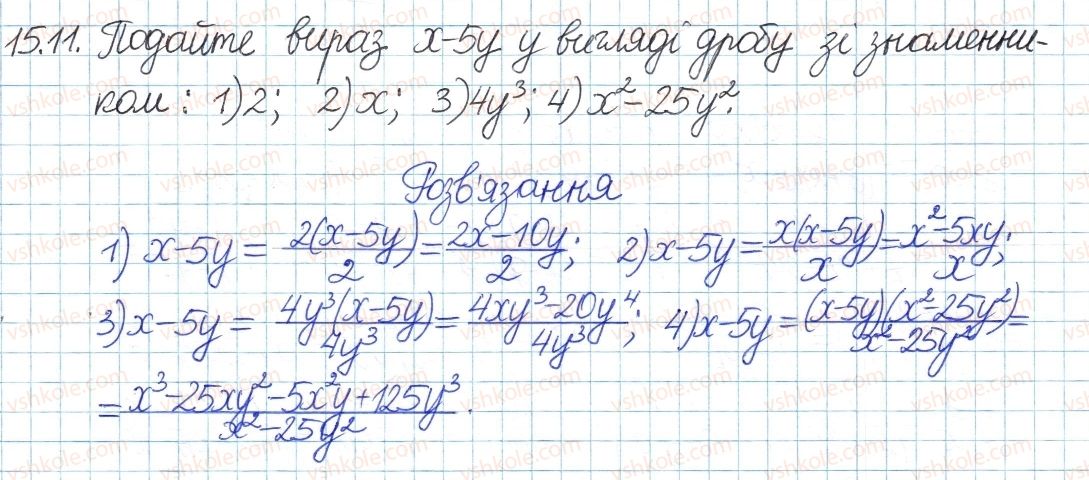 15.11. Подайте вираз x-5y у вигляді дробу зі знаменни-
ком: 1) 2; 2) x; 3) 4y³; 4) x²-25y².
Розв'язання
1) x-5y = 2(x-5y)/2 = 2x-10y/2; 2) x-5y = x(x-5y)/x = x²-5xy/x;
3) x-5y = 4y³(x-5y)/4y³ = 4xy³-20y⁴/4y³; 4) x-5y = (x-5y)(x²-25y²)/x²-25y² =
= x³-25xy²-5x²y+125y³/x²-25y².